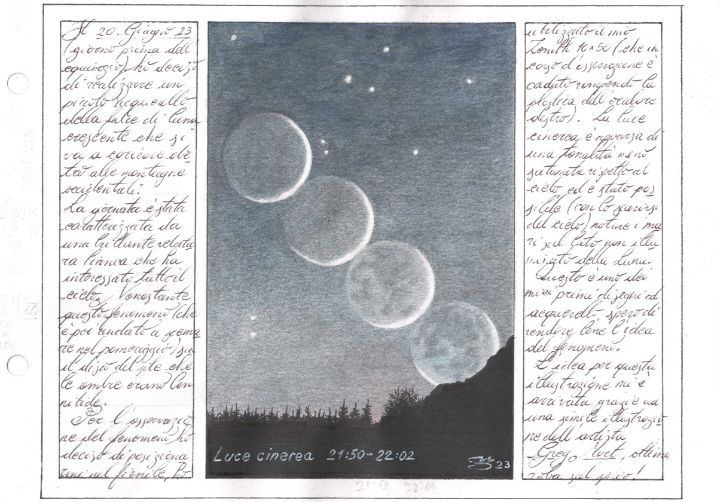 Il 20. Giugno 23
(giorno prima dell'
equinozio) ho deciso
di realizzare un
piccolo acquerello
della falce di luna
crescente che si
va a coricare die
tro alle montagne
occidentali.
La giornata è stata
caratterizzata da
una brillante velatu
ra bianca che ha
interessato tutto il
cielo. Nonostante
questo fenomeno (che
è poi andato a scema
re nel pomeriggio)
il disco del
le ombre erano ben
nitide.
Per l'osservazio
ne del fenomeno, ho
deciso di posiziona
Luce cinerea 21:50-22:02
23
utilizzato il mio
Zenith 10x50 (che in
corso d'osservazione è
caduto rompendo la
plastica dell'oculare
destro). La luce
cinerea è apparsa di
una tonalità meno
saturata rispetto al
cielo ed è stato pos
sibile (con lo scurirsi
del cielo) notare i ma
ri sul lato non illu
minato della Luna.
Questo è uno dei
miei primi disegni ad
acquerello spero di
rendere bene l'idea
del fenomeno.
L'idea per questa
illustrazione mi è
arrivata grazie ad
una simile illustrazio
ne dell'artista
ottima
roba sul serio!